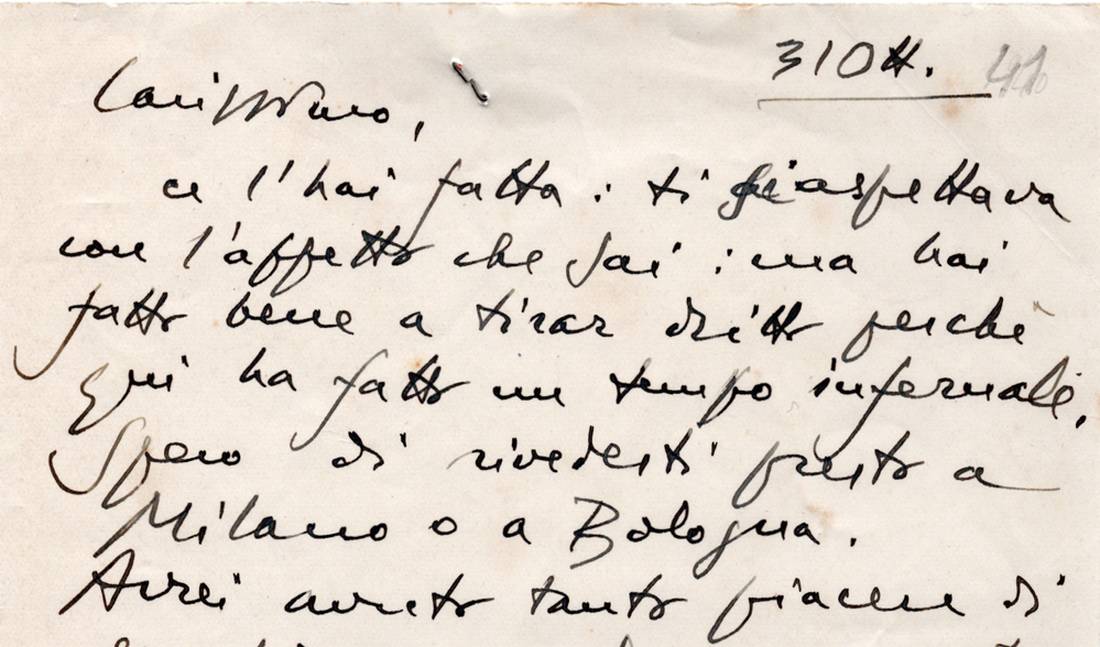 31 Ott.
Carissimo,
ce l'hai fatta : ti aspettava
con l'affetto che sai : ma hai
fatto bene a tirar dritto perché
qui ha fatto un tempo infernale.
Spero di rivederti presto a
Milano o a Bologna.
Avrei avuto tanto piacere di